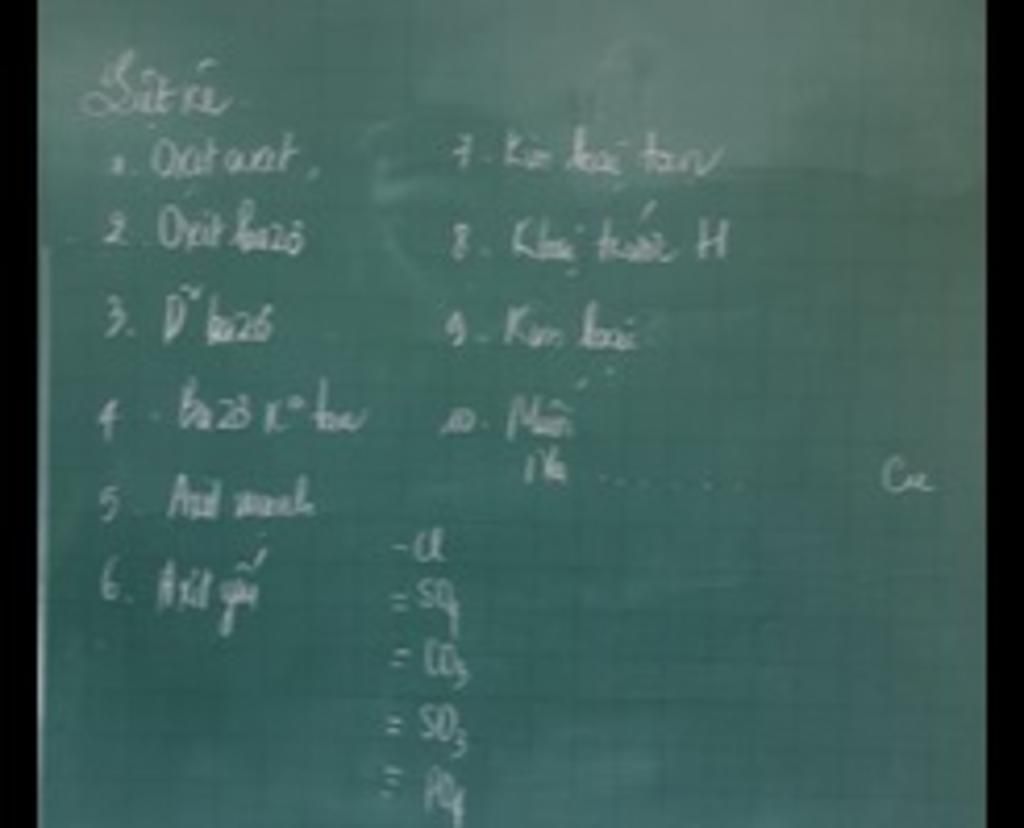 Liệt kê
1. Oxit axit.
2. Oxit bazơ
3. D² bazơ
4. Bazơ K° tan
5. Axit mạnh
6. Axit yếu
7. Kim loại tan
8. Kloại trước H
9. Kim loại
10. Muối
Na ....... Cu
- Cl
= SO4
= CO3
= SO3
≡ PO4